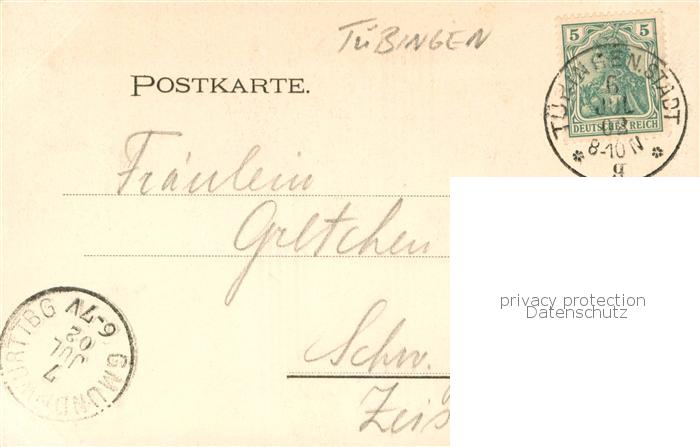 TÜBINGEN
5 5
DEUTSCHES REICH
TÜBINGEN STADT
6
JUL
02
8-10 N
POSTKARTE.
Fräulein
Gretchen
privacy protection
Datenschutz
GMÜND WÜRTTBG
6-7V
7
JUL
02
Schw.
Zeis